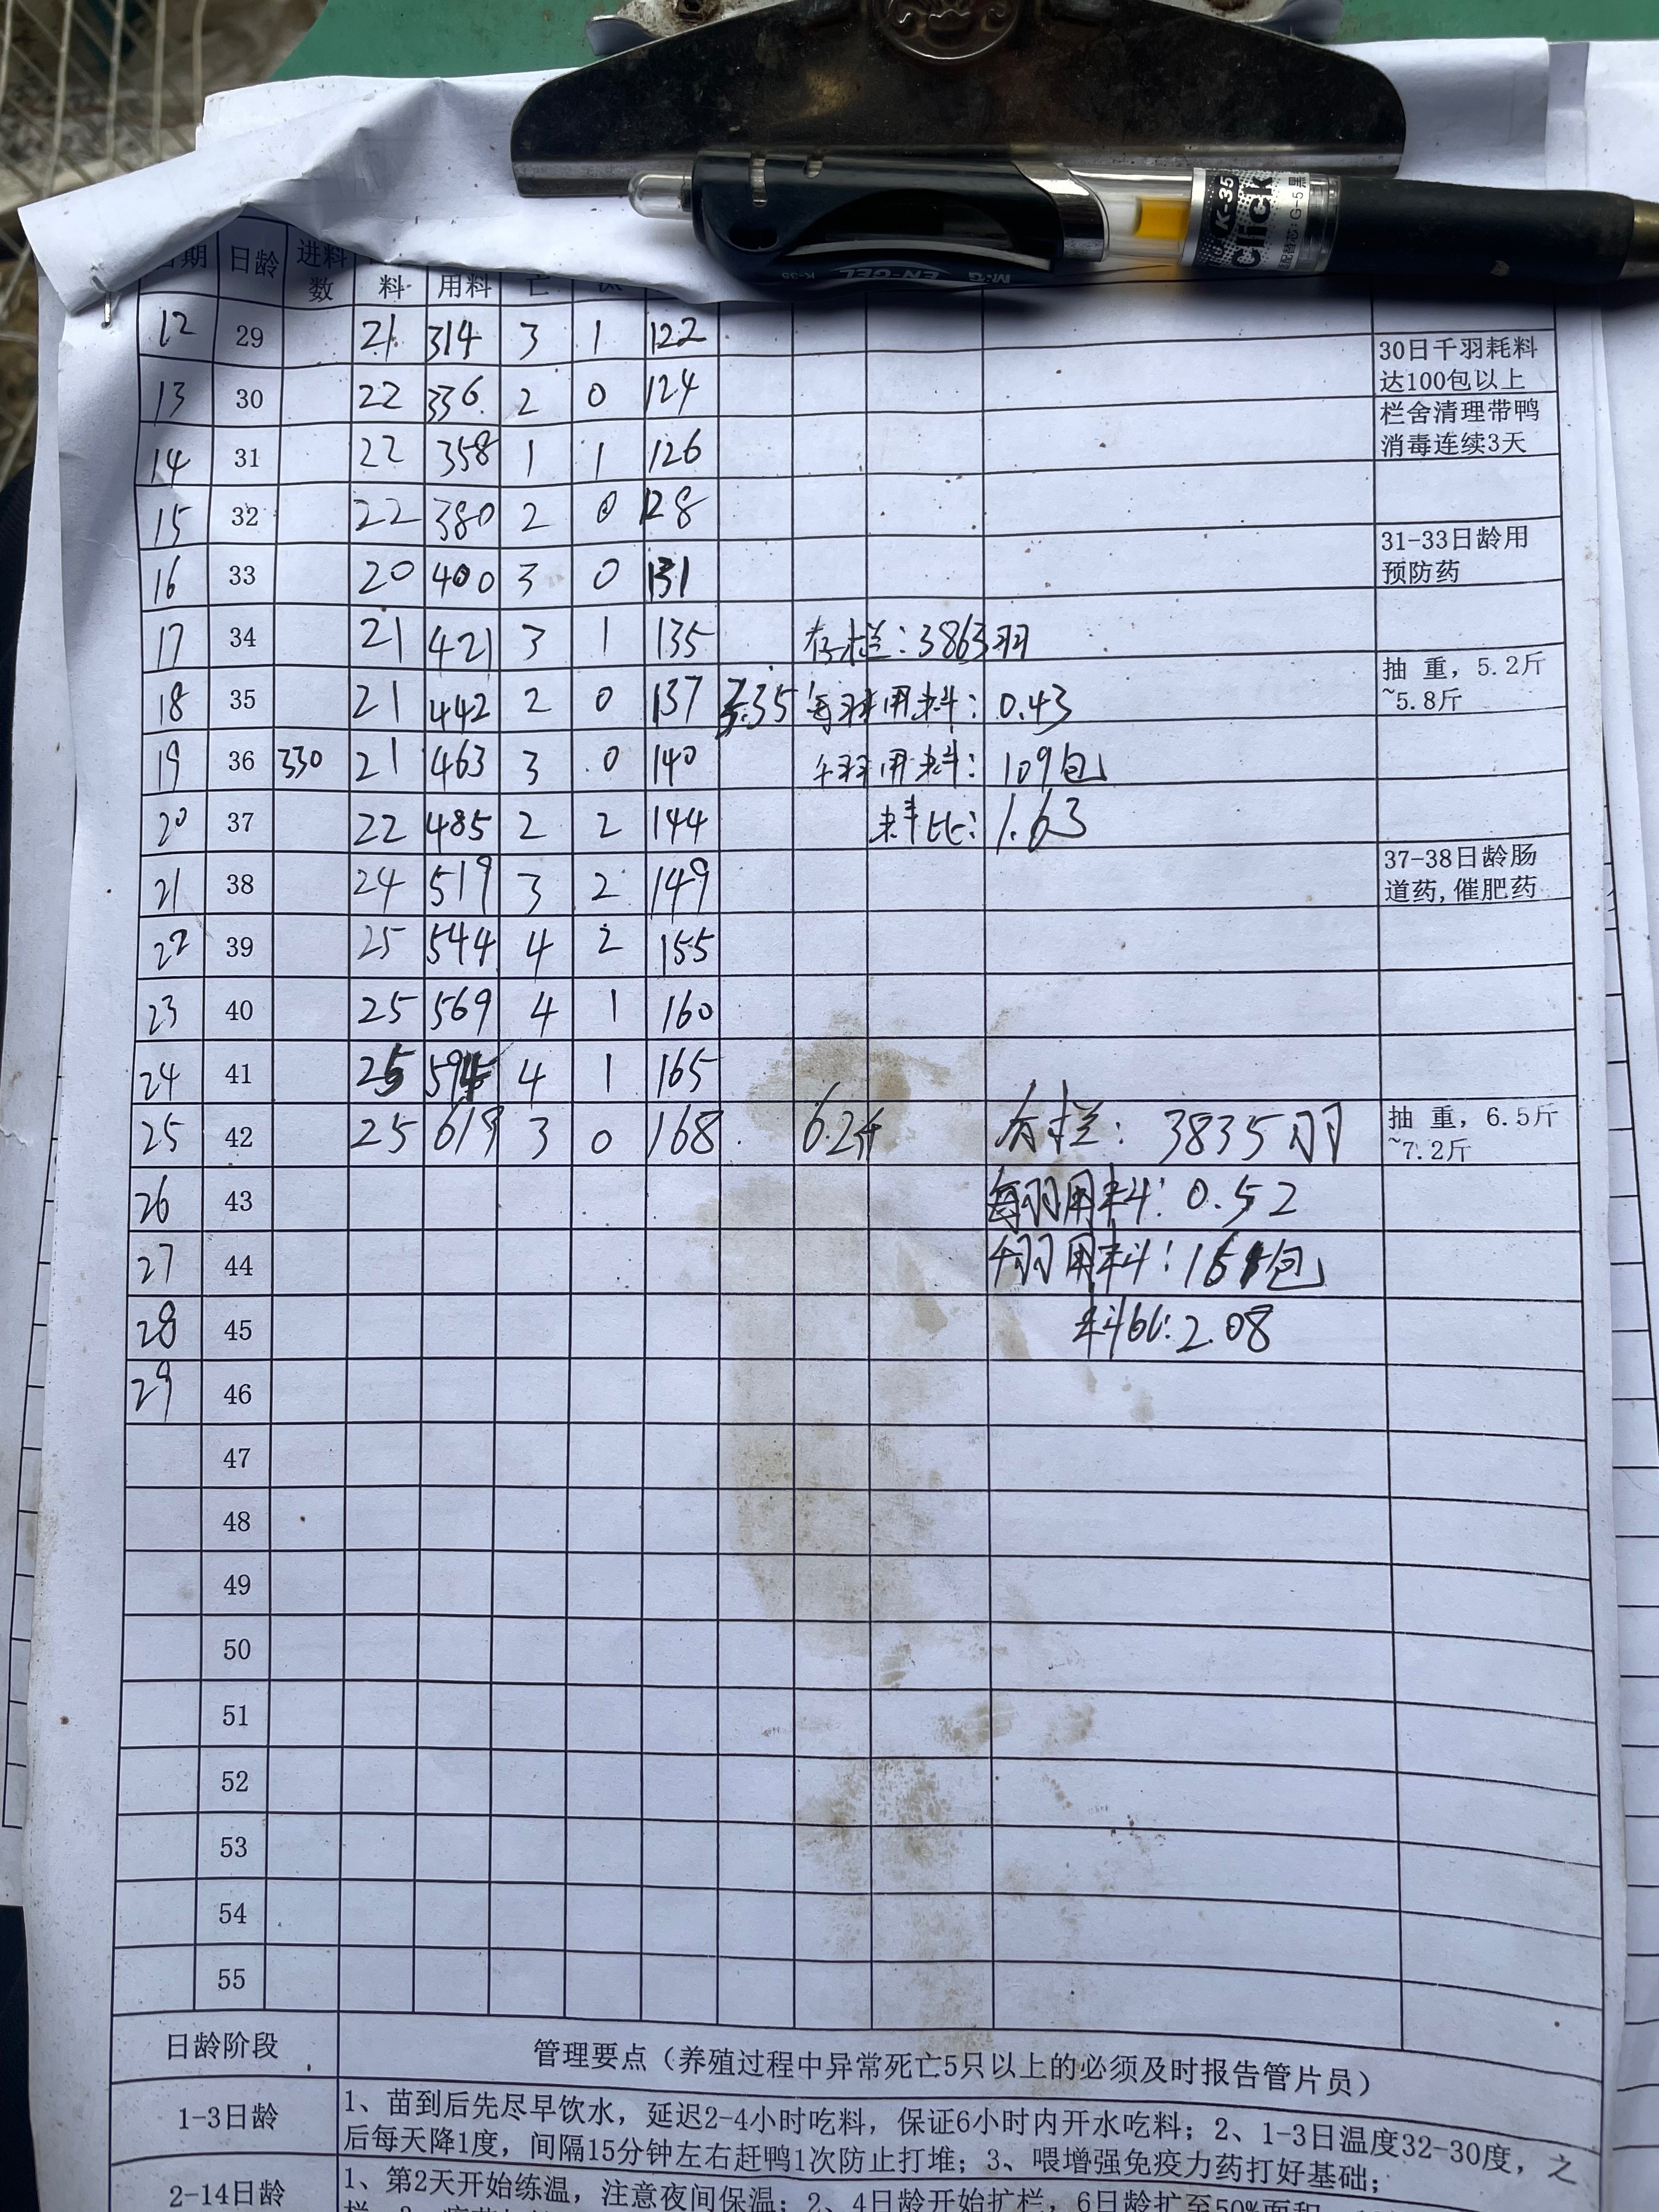 K-35
Click
适配替芯:G-5黑
M&G EN-GEL K-35
日期 日龄 进料数 料 用料 亡
12 29 21 314 3 1 122
30日千羽耗料
达100包以上
13 30 22 336 2 0 124
栏舍清理带鸭
消毒连续3天
14 31 22 358 1 1 126
15 32 22 380 2 0 128
31-33日龄用
预防药
16 33 20 400 3 0 131
17 34 21 421 3 1 135 存栏:3863羽
抽 重, 5.2斤
~5.8斤
18 35 21 442 2 0 137 5.35 每羽用料:0.43
19 36 330 21 463 3 0 140 千羽用料:109包
20 37 22 485 2 2 144 料比:1.63
37-38日龄肠
道药,催肥药
21 38 24 519 3 2 149
22 39 25 544 4 2 155
23 40 25 569 4 1 160
24 41 25 594 4 1 165
25 42 25 619 3 0 168 6.2斤 存栏:3835羽
抽 重, 6.5斤
~7.2斤
26 43 每羽用料:0.52
27 44 千羽用料:161包
28 45 料比:2.08
29 46
47
48
49
50
51
52
53
54
55
日龄阶段 管理要点(养殖过程中异常死亡5只以上的必须及时报告管片员)
1-3日龄 1、苗到后先尽早饮水,延迟2-4小时吃料,保证6小时内开水吃料;2、1-3日温度32-30度,之
后每天降1度,间隔15分钟左右赶鸭1次防止打堆;3、喂增强免疫力药打好基础;
2-14日龄 1、第2天开始练温,注意夜间保温;2、4日龄开始扩栏,6日龄扩至50%面积